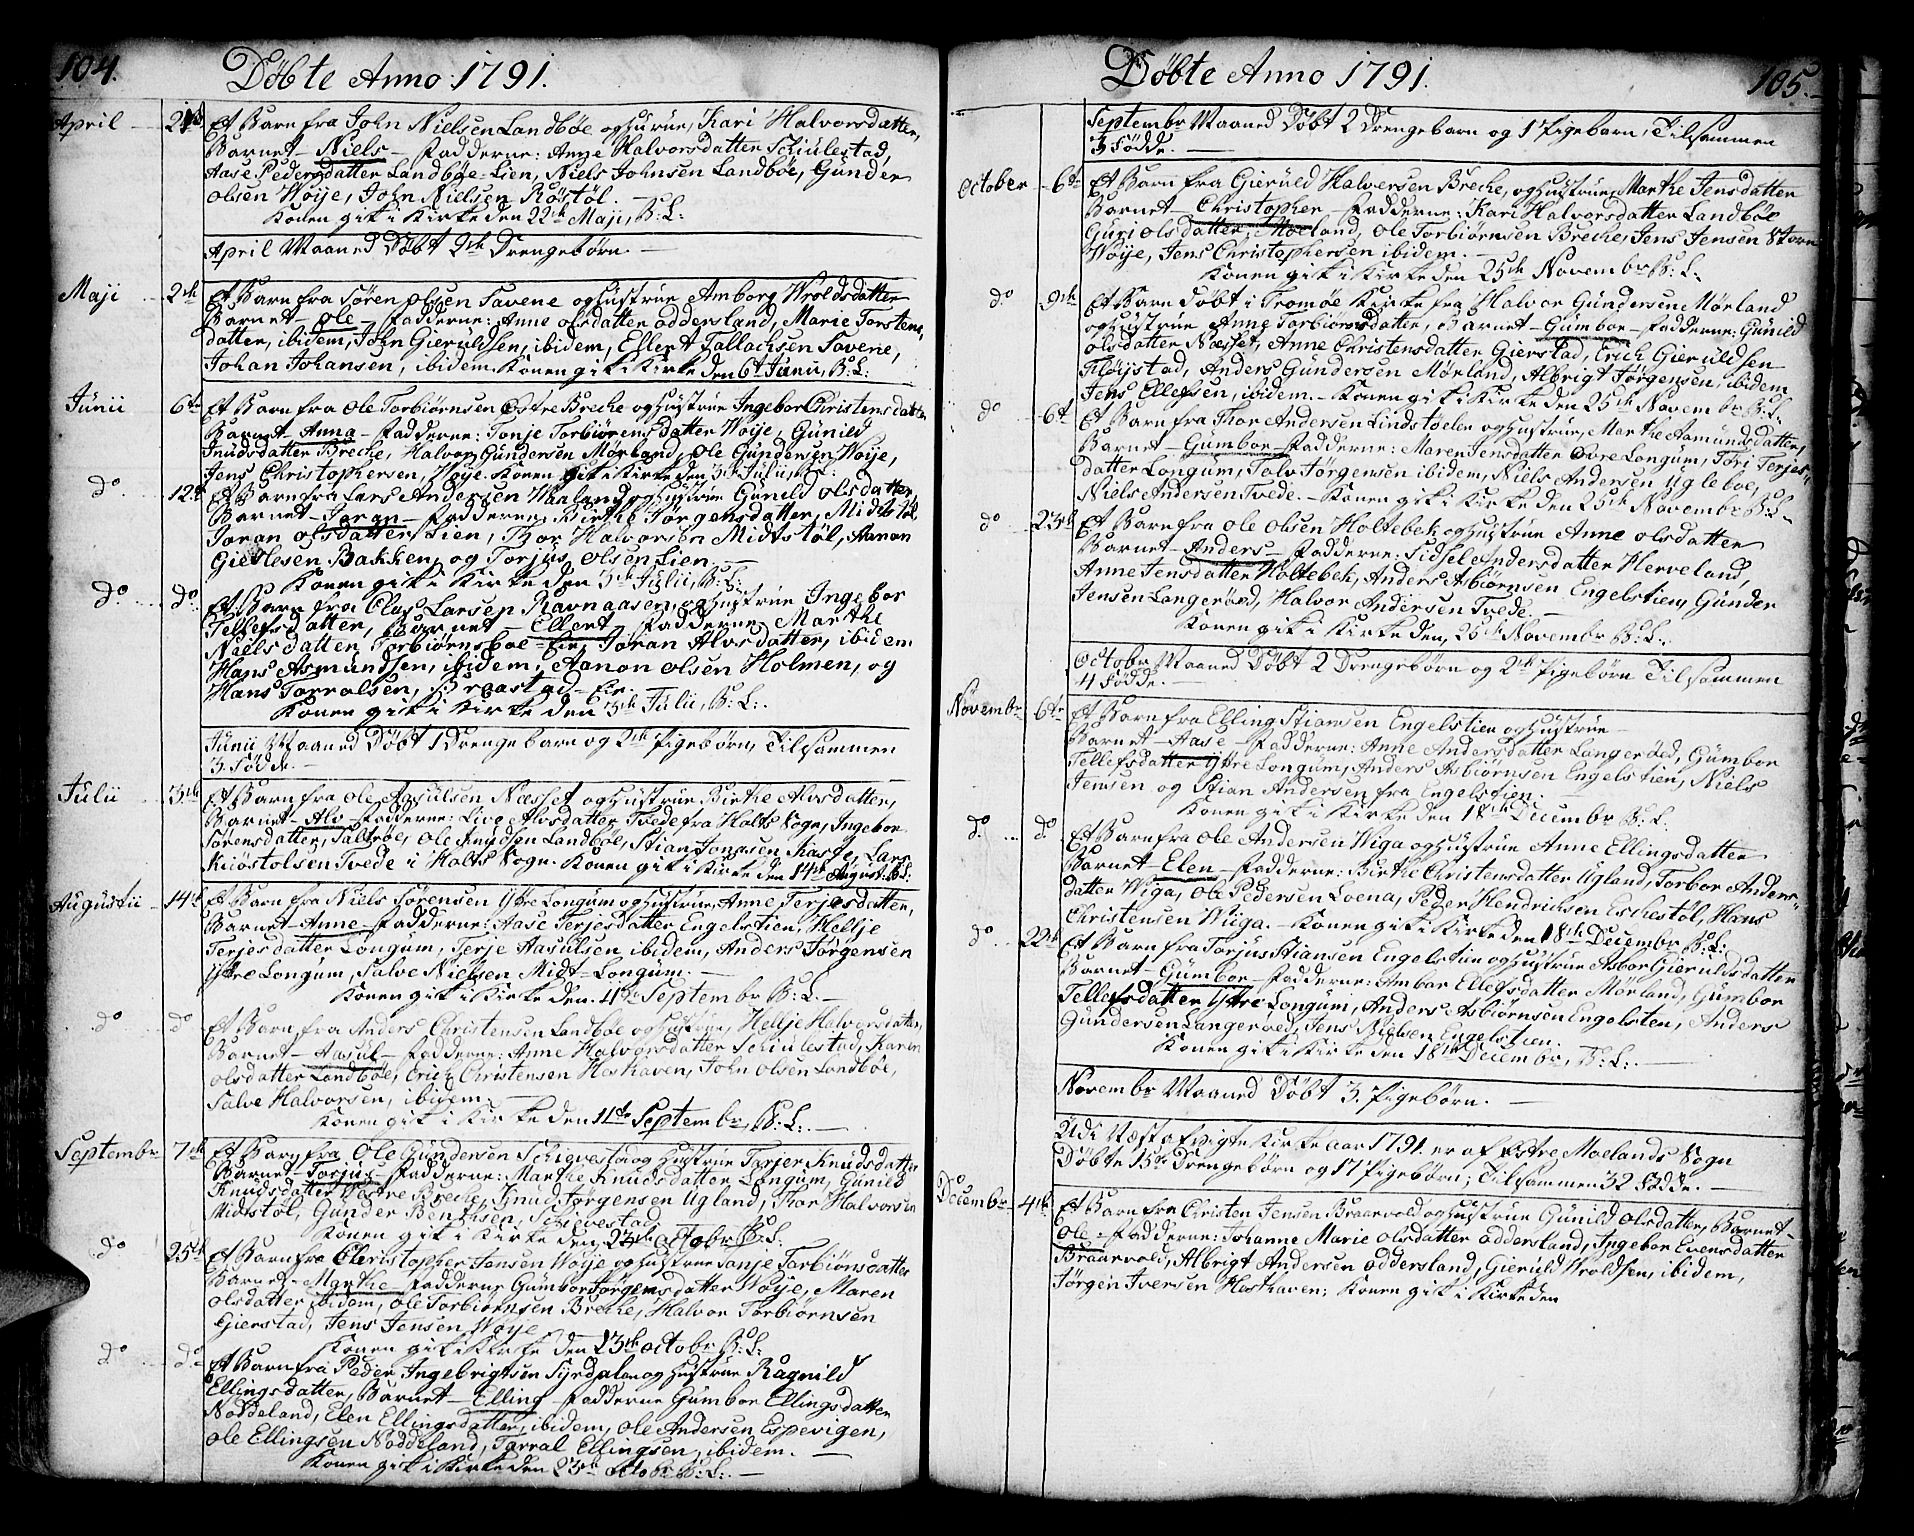 104.
Döbte Anno 1791.
April 21de Et Barn fra John Nielsen Landböe og hustrue, Kari Halvorsdatter,
Barnet - Niels - Fadderne: Anne Halvorsdatter Schiulestad,
Aase Pedersdatter Landböe-Lien, Niels Johnsen Landböe, Gunder
Olsen Wöije, John Nielsen Röstöl. -
Konen gik i Kirke den 22de Maji, B: L:
April Maaned Döbt 2de Drengebörn. -
Maji 2de Et Barn fra Sören Olsen Savene og hustrue Amborg Wroldsdatter
Barnet - Ole - Fadderne: Anne Olsdatter Oddersland, Marie Torstens
datter, ibidem, John Gieruldsen, ibidem, Ellert Tallachsen Savene,
Johan Johansen, ibidem. Konen gik i Kirke den 6t Junii, B: L:
Junii 6te Et Barn fra Ole Torbiörnsen Östre Breche og hustrue Ingebor Christensdatter
Barnet - Anna - Fadderne: Tonje Torbiörensdatter Wöije, Gunild
Knudsdatter Breche, Halvor Gundersen Mörland, Ole Gundersen Wöije,
Jens Christophersen Wöije. Konen gik i Kirke den 3de Julii, B: L:
do 12te Et Barn fra Lars Andersen Waaland og hustrue Gunild Olsdatter,
Barnet - Joran - Fadderne, Birthe Jörgensdatter, Midtstöl,
Joran Olsdatter Lien, Thor Halvorsen Midtstöl, Aanon
Gietlesen Bakken, og Torjus Olsen Lien. -
Konen gik i Kirke den 3de Julii, B: L:
do do Et Barn fra Olas Larsen Ravnaasen, og hustrue Ingebor
Tellefsdatter, Barnet - Ellert - Fadderne. Marthe
Nielsdatter, Torbiörnsboe-Eie, Jöran Alvsdatter, ibidem
Hans Asmundsen, ibidem, Aanon Olsen Holmen, og
Hans Tarralsen, Breastad-Eie.
Konen gik i Kirke den 3de Julii, B: L:.
Junii Maaned Döbt 1 Drengebarn og 2de Pigebörn, Tilsammen
3 Födde. -
Julii 3de Et Barn fra Ole Aasulsen Næsset og hustrue Birthe Alvsdatter,
Barnet - Alv - Fadderne: Live Alvsdatter Tvede fra Holts Sogn, Ingebor
Sörensdatter, Saltröe, Ole Knudsen Landböe, Stian Jonassen Kasse, Lars
Kiöstolsen Tvede i Holts Sogn. Konen gik i Kirke den 14de August. B: L:
Augustii 14de Et Barn fra Niels Sörensen Ytre Longum og hustrue Anne Terjesdatter,
Barnet - Anne - Fadderne: Aase Terjesdatter Engelstien, Hellje
Terjesdatter Longum, Terje Aasulsen ibidem, Anders Jörgensen
Ytre Longum, Salve Nielsen Midt-Longum. -
Konen gik i Kirke den 11te Septembr B: L. -
do do Et Barn fra Anders Christensen Landböe og hustrue, Hellje Halvorsdatter,
Barnet - Aasul - Fadderne: Anne Halvorsdatter Schiulestad, Karen
Olsdatter Landböe, Erich Christensen Heshaven, John Olsen Landböe,
Salve Halvorsen, ibidem. -
Konen gik i Kirke den 11te Septembr, B: L:. -
Septembr 7de Et Barn fra Ole Gundersen Schievesta og hustrue Torjer Knudsdatter
Barnet - Torjus - Fadderne: Marthe Knudsdatter Longum, Gunild
Knudsdatter Vestre Breche, Knud Jörgensen Ugland, Thor Halvorsen
Midtstöl, Gunder Benthsen, Schievestad
Konen gik i Kirke den 23de Octobr B: L:
do 25de Et Barn fra Christopher Jensen Wöije og hustrue Tonje Torbiörnsdatter
Barnet - Marthe - Fadderne Gumbor Jörgensdatter Wöije, Maren
Olsdatter ibidem, Ole Torbiörnsen Breche, Halvor Torbiörnsen
Gierstad, Jens Jensen Wöije
Konen gik i Kirke den 23de Octobr B: L:
do do Et Barn fra Peder Ingebrigtsen Syrdalen og hustrue Ragnild
Ellingsdatter, Barnet - Elling - Fadderne Gumbor Ellingsdatter
Noddeland, Elen Ellingsdatter, ibidem, Ole Andersen Espevigen,
Ole Ellingsen Noddeland, Tarral Ellingsen, ibidem. -
Konen gik i Kirke den 23de Octobr B: L:. -
Döbte Anno 1791.
105.
Septembr Maaned Döbt 2 Drengebarn og 1 Pigebarn, Tilsammen
3 Födde. -
October 6te Et Barn fra Gieruld Halversen Breche, og hustrue Marthe Jensdatter
Barnet - Christopher - Fadderne: Kari Halvorsdatter Landböe
Guri Olsdatter, Moeland, Ole Torbiörnsen Breche, Jens Jensen Store
Wöije, Jens Christophersen ibidem. -
Konen gik i Kirke den 25de Novembr B: L:
do 9de Et Barn Döbt i Tromöe Kirke fra Halvor Gundersen Mörland
og hustrue Anne Torbiörsdatter, Barnet - Gumbor - Fadderne: Gunild
Olsdatter Næsset, Anne Christensdatter Gierstad, Erich Gieruldsen
Flöijstad, Anders Gundersen Mörland, Albrigt Jörgensen, ibidem
Jens Ellefsen, ibidem. - Konen gik i Kirke den 25de Novembr B: L:
do 6t Et Barn fra Thor Andersen Lindstölen og hustrue, Marthe Aamundsdatter,
Barnet - Gumbor - Fadderne: Maren Jensdatter Övre Longum, Tori Terjes
datter Longum, Salv Jörgensen ibidem, Niels Andersen Ugleboe,
Niels Andersen Tvede. - Konen gik i Kirke den 25de Novembr B: L:
do 23de Et Barn fra Ole Olsen Holtebek og hustrue Anne Olsdatter
Barnet - Anders - Fadderne: Sidsele Andersdatter Herveland,
Anne Jensdatter Holtebek, Anders Asbiörnsen Engelstien, Gunder
Jensen Langeröed, Halvor Andersen Tvede. -
Konen gik i Kirke den, 25de Novembr B: L:.
Octobr Maaned Döbt 2 Drengebörn og 2de Pigebörn Tilsammen
4 Födde. -
Novembr 6te Et Barn fra Elling Stiansen Engelstien og hustrue
Barnet - Aase - Fadderne: Anne Andersdatter Langeröed, Gumbor
Tellefsdatter Ytre Longum, Anders Asbiörnsen Engelstien, Niels
Jensen og Stian Andersen fra Engelstien. -
Konen gik i Kirke den 18de Decembr B: L.
do do Et Barn fra Ole Andersen Wiga og hustrue Anne Ellingsdatter
Barnet - Elen - Fadderne: Birthe Christensdatter Ugland, Torbor Anders
datter Wiga, Ole Pedersen Loena, Peder Hendrichsen Eschestöl, Hans
Christensen Wiiga. - Konen gik i Kirke den 18de Decembr B: L:
do 22de Et Barn fra Torjus Stiansen Engelstien og hustrue Asbor Gieruldsdatter
Barnet - Gumbor - Fadderne: Ambor Ellefsdatter Mörland, Gumbor
Tellefsdatter Ytre Longum, Anders Asbiörnsen Engelstien, Anders
Gundersen Langeröed, Jens Nielsen Engelstien.
Konen gik i Kirke den 18de Decembr, B: L:. -
Novembr Maaned Döbt 3. Pigebörn. -
Udi Næstafvigte Kirkeaar 1791. er af Östre Moelands Sogn
Döbte 15de Drengebörn og 17 Pigebörn; Tilsammen 32 Födde. -
Decembr 4de Et Barn fra Christen Jensen Braarvold og hustrue Gunild Olsdatter, Barnet -
Ole - Fadderne: Johanne Marie Olsdatter Oddersland, Ingebor Evensdatter
Braarvold, Albrigt Andersen Oddersland, Gieruld Wroldsen, ibidem,
Jörgen Iversen Hesthaven; Konen gik i Kirke den